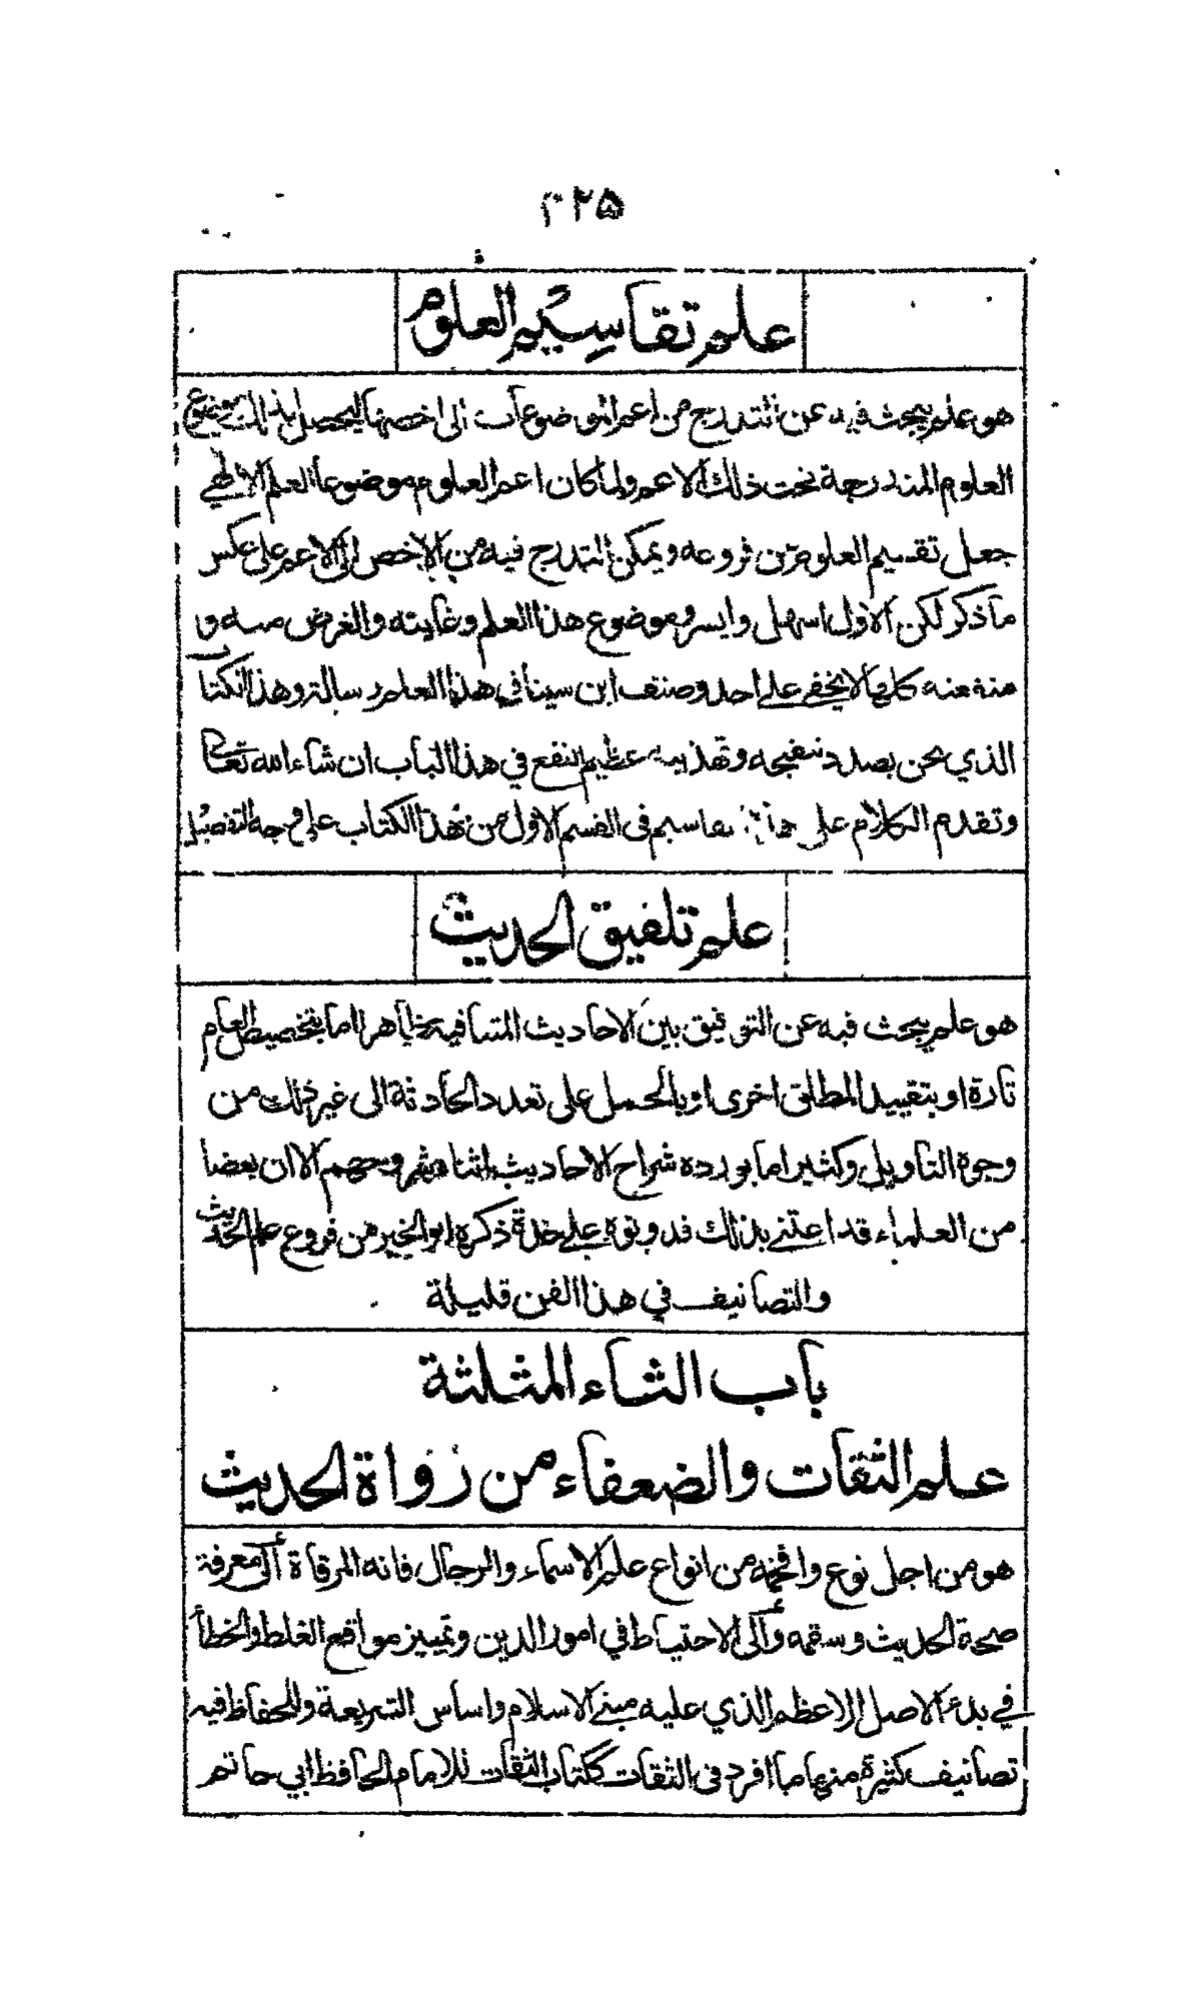 ٣٢٥
علم تقاسيم العلوم
هو علم يبحث فيه عن التدرج من اعم الموضوعات الى اخصها ليحصل بذلك موضوع
العلوم المندرجة تحت ذلك الاعم ولما كان اعم العلوم موضوعا العلم الالهي
جعل تقسيم العلوم من فروعه ويمكن التدرج فيه من الاخص الى الاعم على عكس
ما ذكر لكن الاول اسهل وايسر وموضوع هذا العلم وغايته والغرض منه و
منفعته كلها لا يخفى على احد وصنف ابن سينا في هذا العلم رسالة وهذا الكتاب
الذي نحن بصدد تنقيحه وتهذيبه عظيم النفع في هذا الباب ان شاء الله تعالى
وتقدم الكلام على تقاسيم في القسم الاول من هذا الكتاب على وجه التفصيل
علم تلفيق الحديث
هو علم يبحث فيه عن التوفيق بين الاحاديث المتنافية ظاهرا اما بتخصيص العام
تارة او بتقييد المطلق اخرى او بالحمل على تعدد الحادثة الى غير ذلك من
وجوه التاويل وكثيرا ما يورده شراح الاحاديث اثناء شروحهم الا ان بعضا
من العلماء قد اعتنى بذلك فدونوه على حدة ذكره ابو الخير من فروع علم الحديث
والتصانيف في هذا الفن قليلة
باب الثاء المثلثة
علم الثقات والضعفاء من رواة الحديث
هو من اجل نوع وافخمه من انواع علم الاسماء والرجال فانه المرقاة الى معرفة
صحة الحديث وسقمه والى الاحتياط في امور الدين وتمييز مواقع الغلط والخطأ
في بدء الاصل الاعظم الذي عليه مبنى الاسلام واساس الشريعة وللحفاظ فيه
تصانيف كثيرة منها ما افرد في الثقات ككتاب الثقات للامام الحافظ ابي حاتم